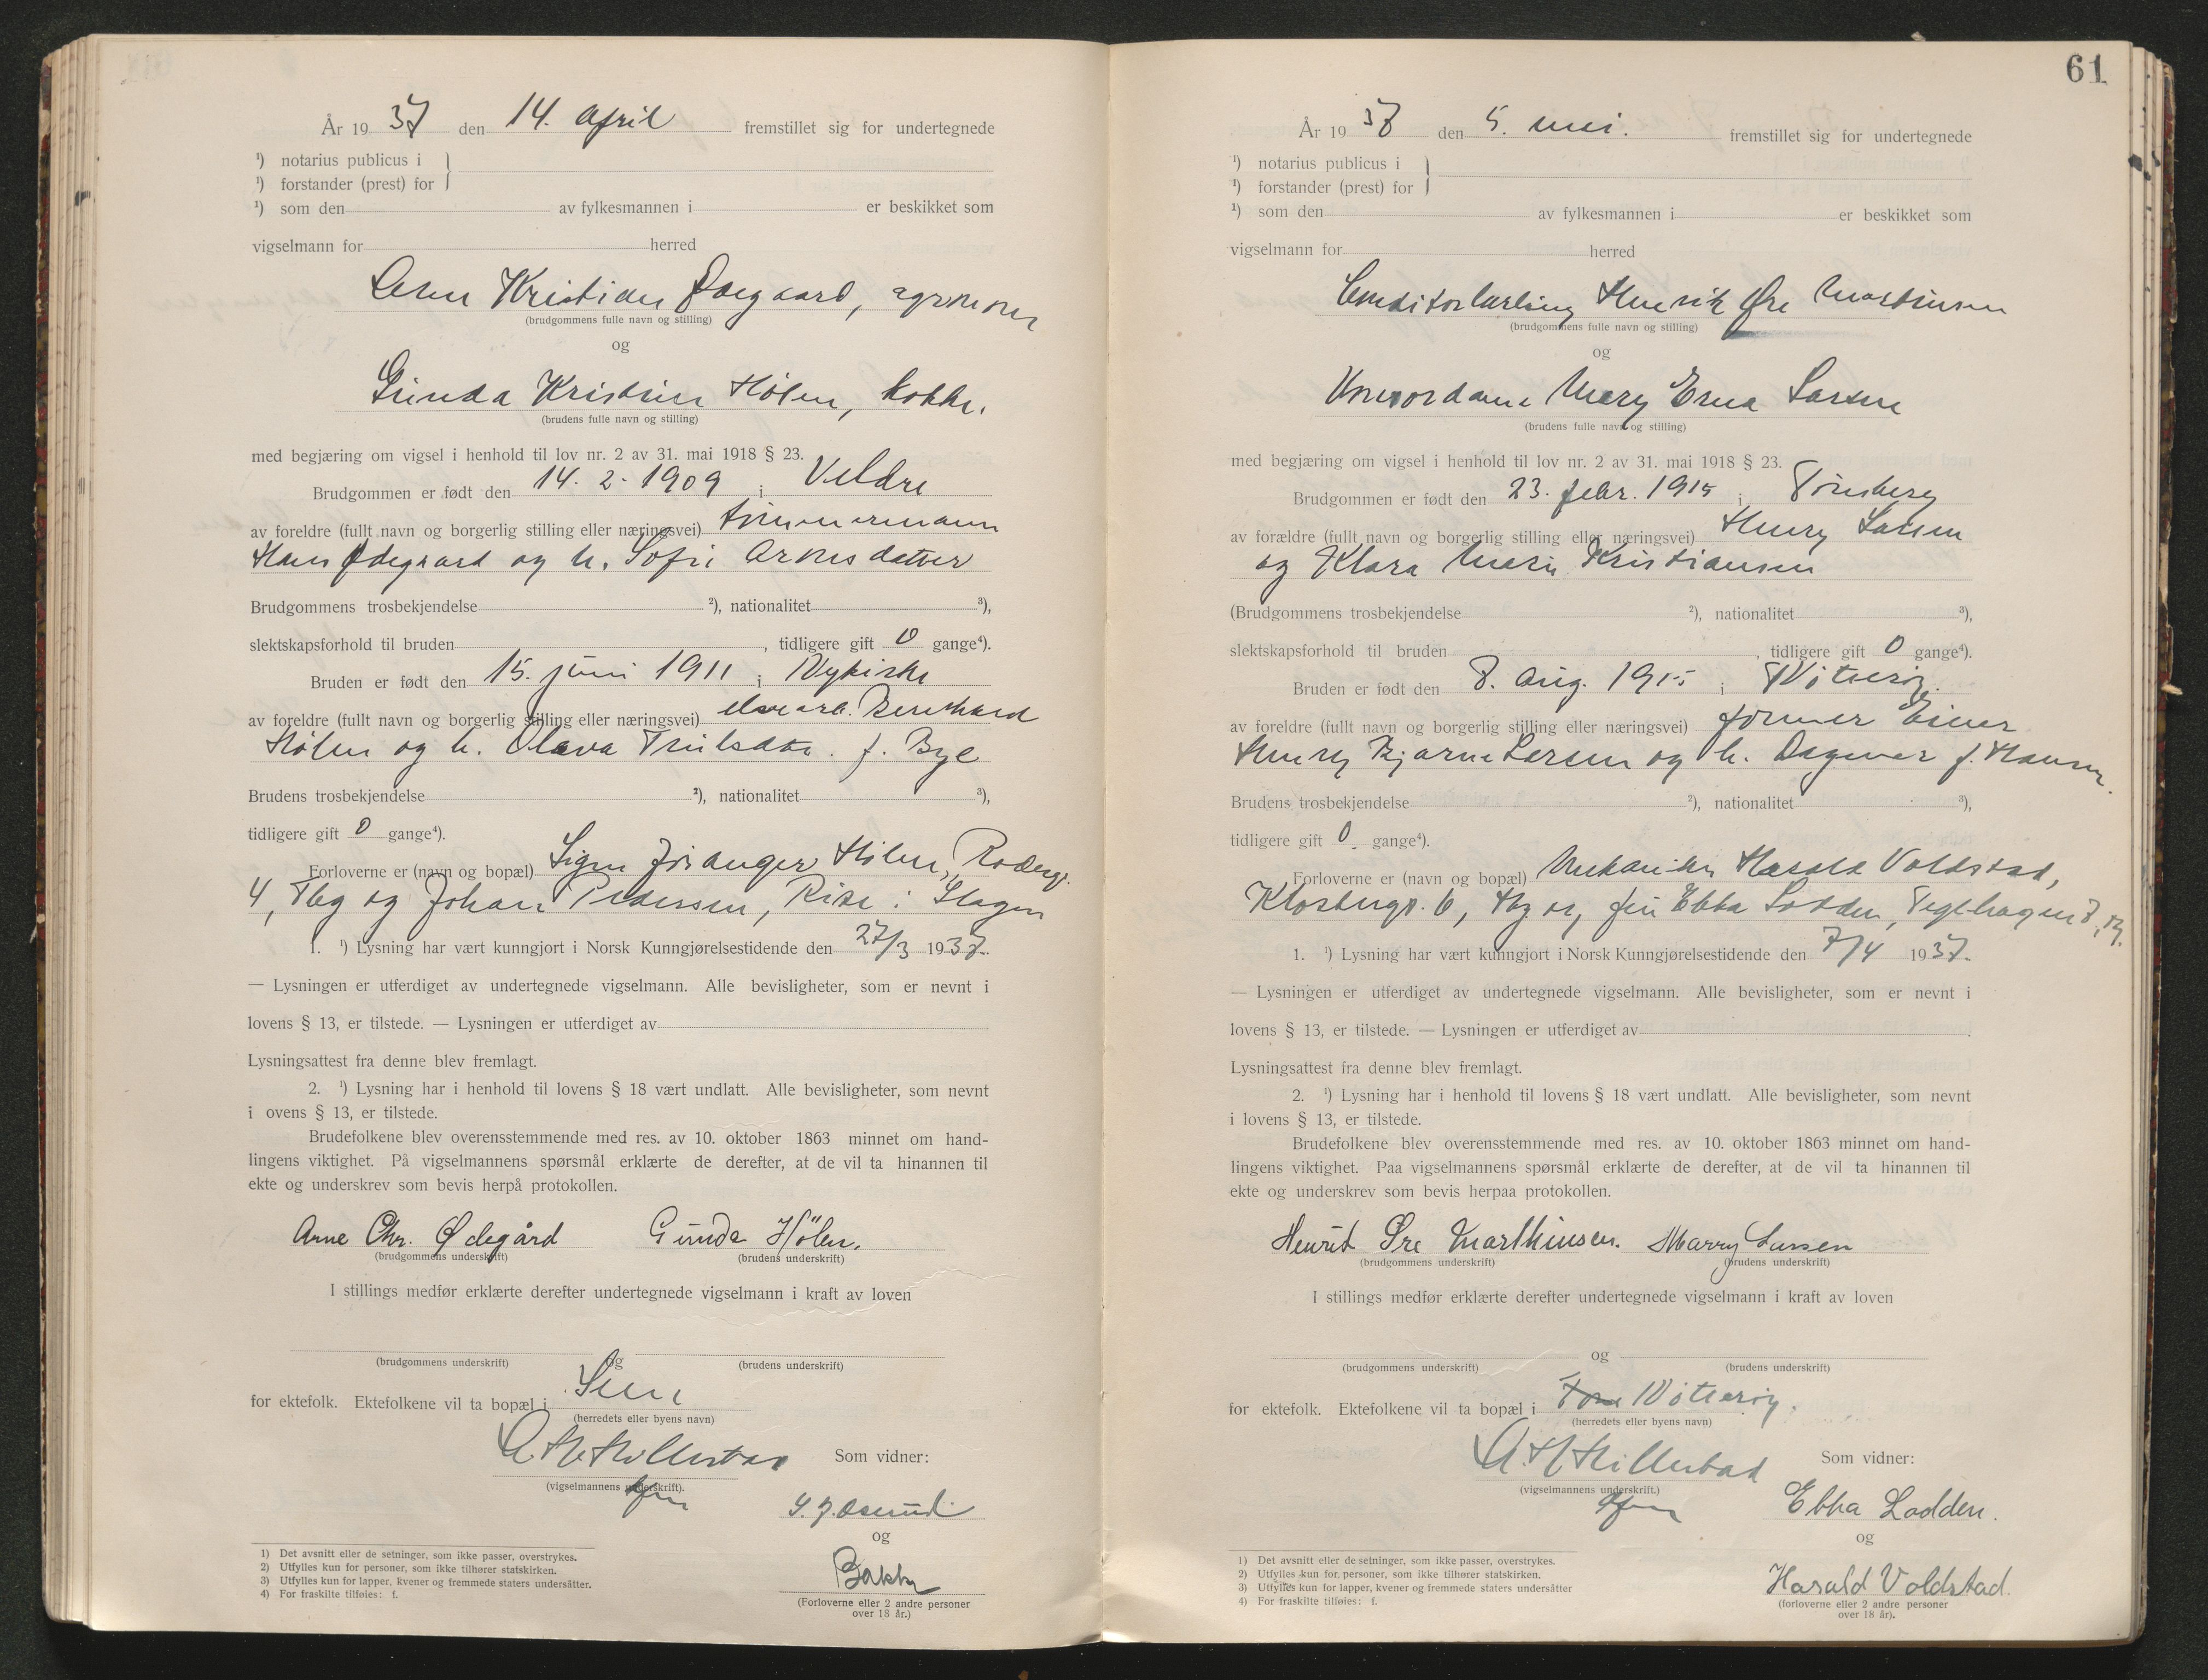 År 19 37 den 14. april fremstillet sig for undertegnede
¹) notarius publicus i
¹) forstander (prest) for
¹) som den av fylkesmannen i er beskikket som
vigselmann for herred
Kristian agronom
(brudgommens fulle navn og stilling)
og
Gunda Kristine Hølen, kokke.
(brudens fulle navn og stilling)
med begjæring om vigsel i henhold til lov nr. 2 av 31. mai 1918 § 23.
Brudgommen er født den 14. 2. 1909 i Veldre
av foreldre (fullt navn og borgerlig stilling eller næringsvei) tømmermann
Hans Ødegaard og h. Sofie Arnesdatter
Brudgommens trosbekjendelse ²), nationalitet ³),
slektskapsforhold til bruden , tidligere gift 0 gange⁴).
Bruden er født den 15. juni 1911 i Nykirke
av foreldre (fullt navn og borgerlig stilling eller næringsvei) Bernhard
Hølen og h. Olava f. Bye
Brudens trosbekjendelse ²), nationalitet ³),
tidligere gift 0 gange⁴).
Forloverne er (navn og bopæl) Hølen,
4, Tbg og Johan Pedersen, Rise i Slagen
1. ¹) Lysning har vært kunngjort i Norsk Kunngjørelsestidende den 27/3 1937.
— Lysningen er utferdiget av undertegnede vigselmann. Alle bevisligheter, som er nevnt i
lovens § 13, er tilstede. — Lysningen er utferdiget av
Lysningsattest fra denne blev fremlagt.
2. ¹) Lysning har i henhold til lovens § 18 vært undlatt. Alle bevisligheter, som nevnt
i ovens § 13, er tilstede.
Brudefolkene blev overensstemmende med res. av 10. oktober 1863 minnet om hand-
lingens viktighet. På vigselmannens spørsmål erklærte de derefter, at de vil ta hinannen til
ekte og underskrev som bevis herpå protokollen.
Arne Chr. Ødegård Gunda Hølen.
(brudgommens underskrift) (brudens underskrift)
I stillings medfør erklærte derefter undertegnede vigselmann i kraft av loven
og
(brudgommens underskrift) (brudens underskrift)
for ektefolk. Ektefolkene vil ta bopæl i Sem
(herredets eller byens navn)
A. H. Hillestad Som vidner:
(vigselmannens underskrift).
og
Bakke
(Forloverne eller 2 andre personer
over 18 år.)
1) Det avsnitt eller de setninger, som ikke passer, overstrykes.
2) Utfylles kun for personer, som ikke tilhører statskirken.
3) Utfylles kun for lapper, kvener og fremmede staters undersåtter.
4) For fraskilte tilføies: f.
61
År 19 37 den 5. mai. fremstillet sig for undertegnede
¹) notarius publicus i
¹) forstander (prest) for
¹) som den av fylkesmannen i er beskikket som
vigselmann for herred
Conditorlærling Henrik Øre Marthinsen
(brudgommens fulle navn og stilling)
og
Kontordame Mary Erna Larsen
(brudens fulle navn og stilling)
med begjæring om vigsel i henhold til lov nr. 2 av 31. mai 1918 § 23.
Brudgommen er født den 23. febr. 1915 i Tønsberg
av forældre (fullt navn og borgerlig stilling eller næringsvei) Henry Larsen
og Klara Marie Kristiansen
(Brudgommens trosbekjendelse ²), nationalitet ³),
slektskapsforhold til bruden , tidligere gift 0 gange⁴).
Bruden er født den 8. aug. 1915 i Nøtterøy.
av foreldre (fullt navn og borgerlig stilling eller næringsvei) former Einar
Henry Bjarne Larsen og h. Dagmar f. Hansen.
Brudens trosbekjendelse ²), nationalitet ³),
tidligere gift 0 gange⁴).
Forloverne er (navn og bopæl) Mekaniker Harald Voldstad,
Klostergt. 6, Tbg og frk Ebba Lodden, Teglhagen
1. ¹) Lysning har vært kunngjort i Norsk Kunngjørelsestidende den 7/4 1937.
— Lysningen er utferdiget av undertegnede vigselmann. Alle bevisligheter, som er nevnt i
lovens § 13, er tilstede. — Lysningen er utferdiget av
Lysningsattest fra denne blev fremlagt.
2. ¹) Lysning har i henhold til lovens § 18 vært undlatt. Alle bevisligheter, som nevnt
i lovens § 13, er tilstede.
Brudefolkene blev overensstemmende med res. av 10. oktober 1863 minnet om hand-
lingens viktighet. Paa vigselmannens spørsmål erklærte de derefter, at de vil ta hinannen til
ekte og underskrev som bevis herpaa protokollen.
Henrik Øre Marthinsen. Marry Larsen
(brudgommens underskrift) (brudens underskrift)
I stillings medfør erklærte derefter undertegnede vigselmann i kraft av loven
og
(brudgommens underskrift) (brudens underskrift)
for ektefolk. Ektefolkene vil ta bopæl i Nøtterøy.
(herredets eller byens navn)
A. H. Hillestad Som vidner:
(vigselmannens underskrift.)
Ebba Lodden.
og
Harald Voldstad.
(forloverne eller 2 andre personer
over 18 år).
1) Det avsnitt eller de setninger, som ikke passer, overstrykes.
2) Utfylles kun for personer, som ikke tilhører statskirken.
3) Utfylles kun for lapper, kvener og fremmede staters undersåtter
4) For fraskilte tilføies: f.